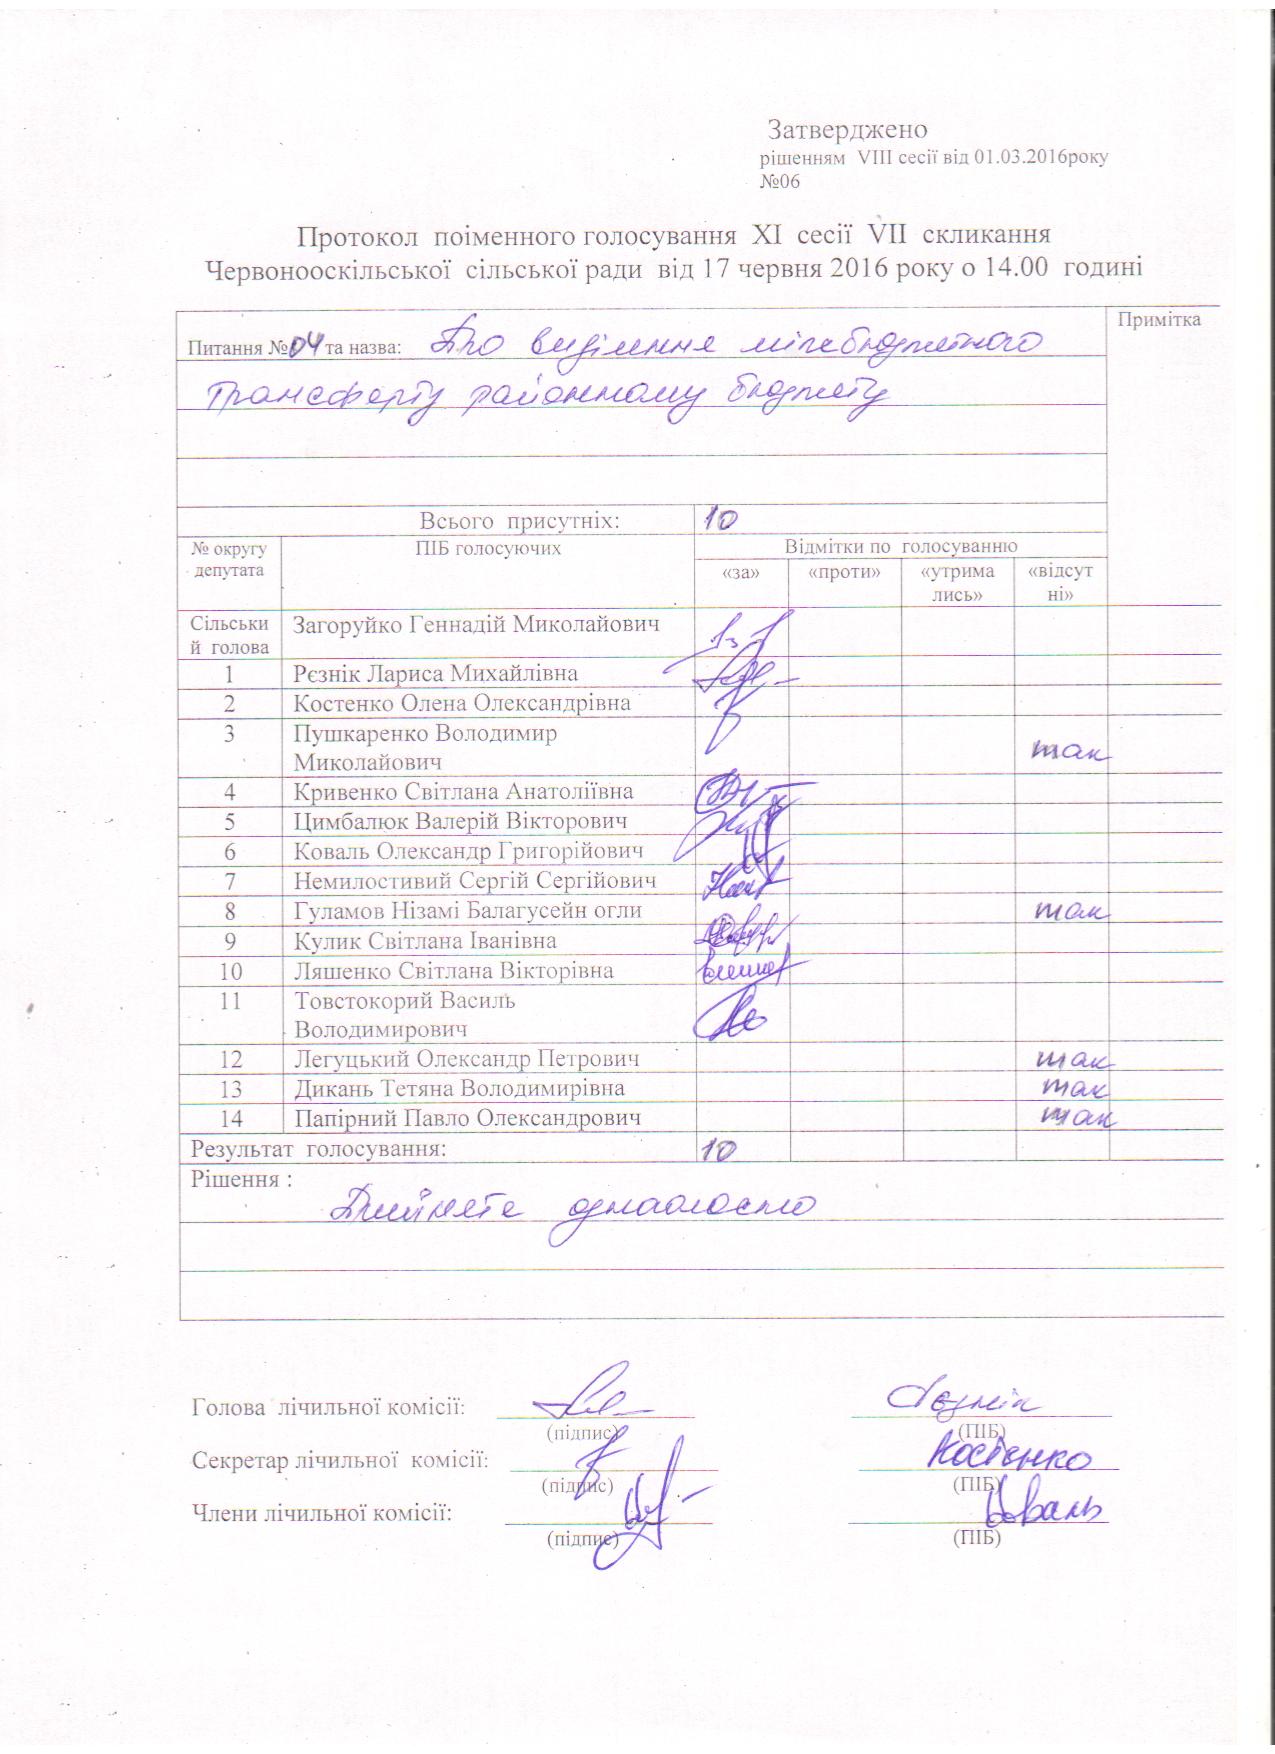 Затверджено
рішенням VIII сесії від 01.03.2016року
№06
Протокол поіменного голосування XI сесії VII скликання
Червонооскільської сільської ради від 17 червня 2016 року о 14.00 годині
Питання №04 та назва: Про виділення міжбюджетного Примітка
трансферту районному бюджету
Всього присутніх: 10
№ округу ПІБ голосуючих Відмітки по голосуванню
депутата «за» «проти» «утрима «відсут
лись» ні»
Сільськи Загоруйко Геннадій Миколайович
й голова
1 Рєзнік Лариса Михайлівна
2 Костенко Олена Олександрівна
3 Пушкаренко Володимир
Миколайович так
4 Кривенко Світлана Анатоліївна
5 Цимбалюк Валерій Вікторович
6 Коваль Олександр Григорійович
7 Немилостивий Сергій Сергійович
8 Гуламов Нізамі Балагусейн огли так
9 Кулик Світлана Іванівна
10 Ляшенко Світлана Вікторівна
11 Товстокорий Василь
Володимирович
12 Легуцький Олександр Петрович так
13 Дикань Тетяна Володимирівна так
14 Папірний Павло Олександрович так
Результат голосування: 10
Рішення :
Прийнято одноголосно
Голова лічильної комісії: Рєзнік
(підпис) (ПІБ)
Секретар лічильної комісії: Костенко
(підпис) (ПІБ)
Члени лічильної комісії: Коваль
(підпис) (ПІБ)